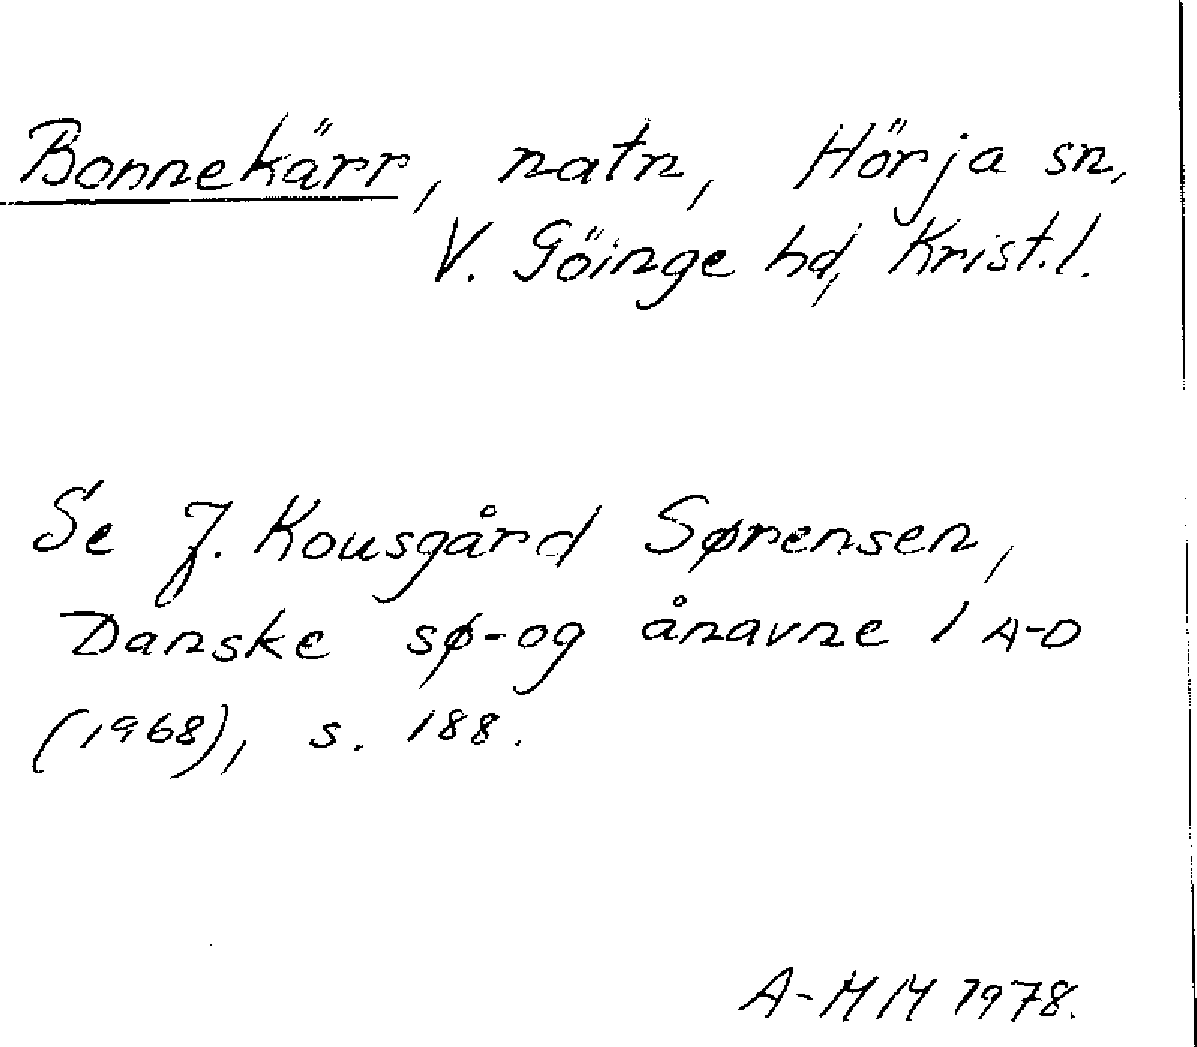 Bonnekärr, natn, Hörja sn,
V. Göinge hd, Krist.l.
Se J. Kousgård Sørensen,
Danske sø- og ånavne 1 A-D
(1968), s. 188.
A-MM 1978.